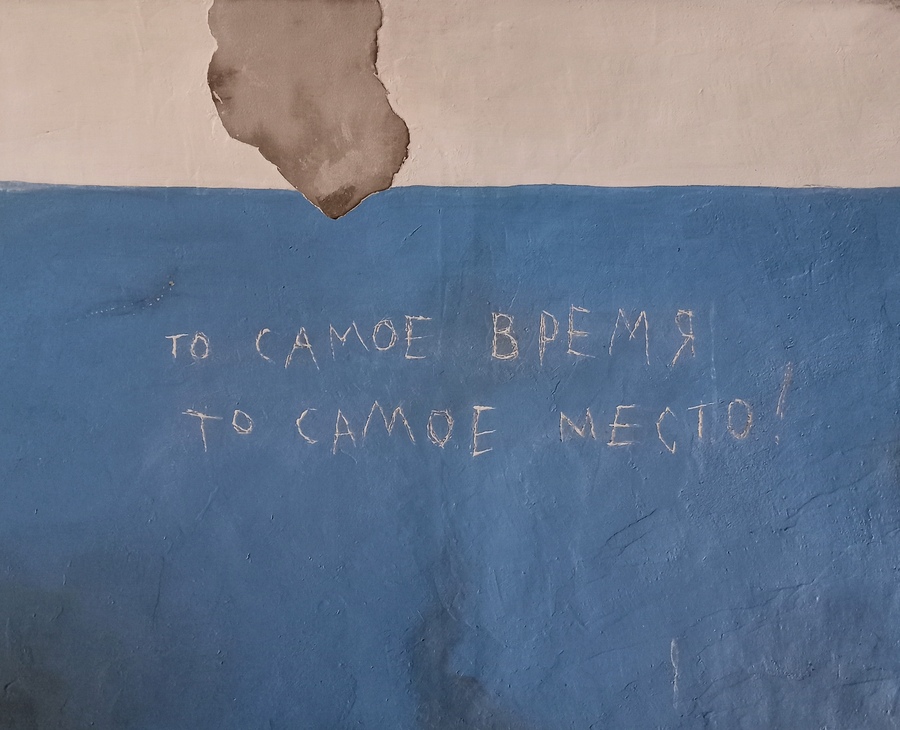 ТО САМОЕ ВРЕМЯ
ТО САМОЕ МЕСТО!